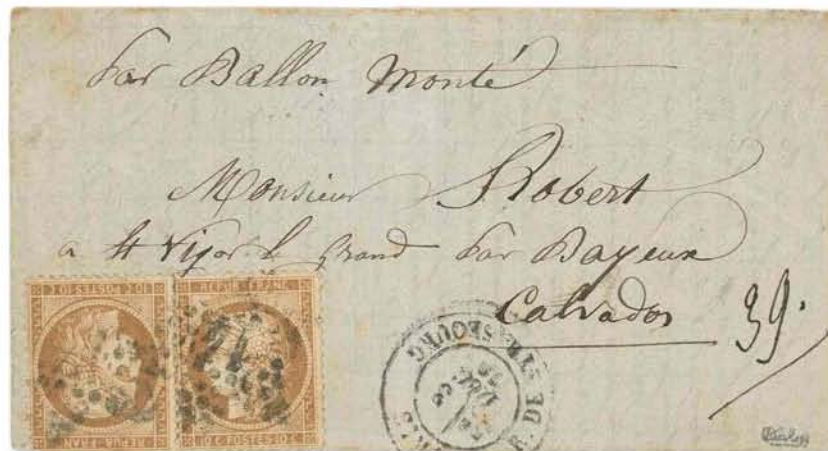 Par Ballon Monté
Monsieur Robert
a St Vigor le Grand Par Bayeux
Calvados 39.
10 C POSTES 10 C
REPUB FRAN
REPUB FRANC
10 C POSTES 10 C
R. DE STRASBOURG